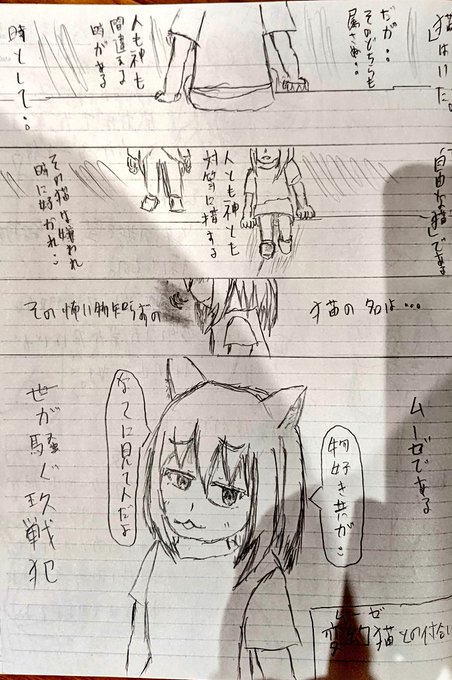 猫はいた。
だが‥
そのどちらも
属さぬ‥
人も神も
間違える
時がある
時として‥
自由な猫」である
人とも神とも
対等に接する
その猫は嫌われ
時に好かれ‥
猫の名は…
その怖い物知らずの
ムーゼである
物好き共がさ
なに見てんだよ
世が騒ぐ玖戦犯
ムーゼ
変的猫との付合い